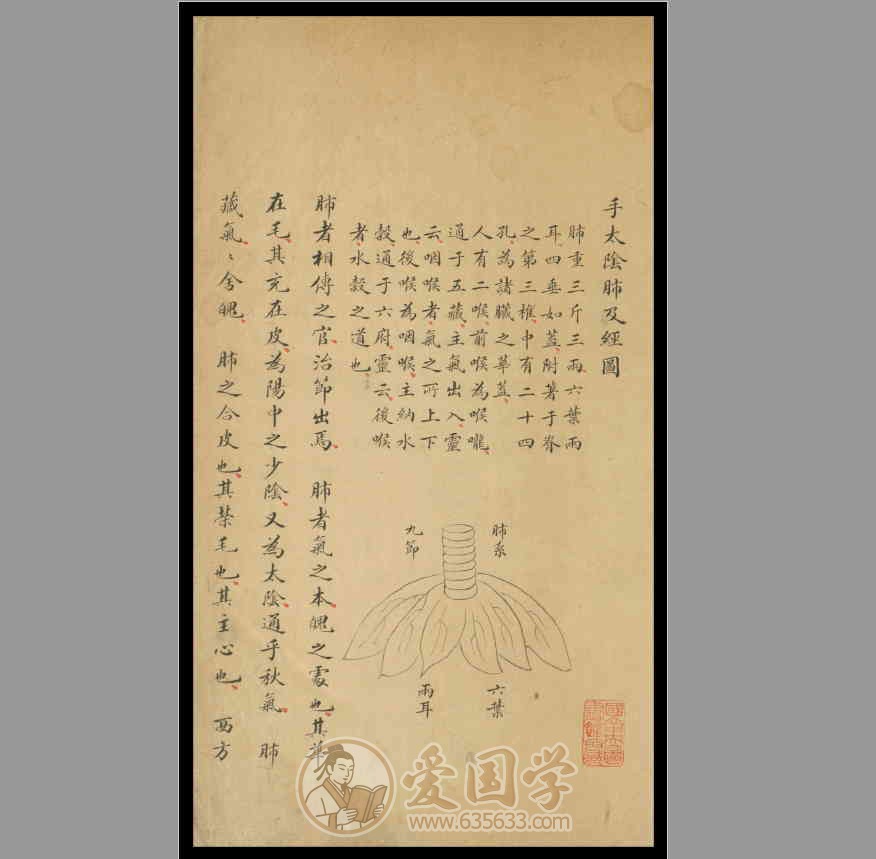 手太陰肺及經圖
肺重三斤三兩六葉兩
耳四垂如蓋附著于脊
之第三椎中有二十四
孔為諸臟之華蓋
人有二喉前喉為喉嚨
通于五藏主氣出入靈
云咽喉者氣之所上下
也後喉為咽喉主納水
穀通于六府靈云後喉
者水穀之道也
肺系
九節
六葉
兩耳
肺者相傅之官治節出焉 肺者氣之本魄之處也其華
在毛其充在皮為陽中之少陰又為太陰通乎秋氣 肺
藏氣〻舍魄 肺之合皮也其榮毛也其主心也 西方
爱国学
www.635633.com